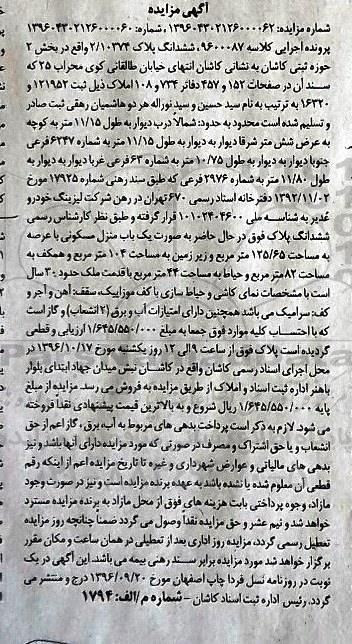 آگهی مزایده
شماره مزایده: ۱۳۹۶۰۴۳۰۲۱۲۶۰۰۰۰۶۲، شماره: ۱۳۹۶۰۴۳۰۲۱۲۶۰۰۰۰۶۰
پرونده اجرایی کلاسه ۹۶۰۰۰۸۷، ششدانگ پلاک ۲/۱۰۳۷۴ واقع در بخش ۲
حوزه ثبتی کاشان به نشانی کاشان انتهای خیابان طالقانی کوی محراب ۲۵ که
سند آن در صفحات ۱۵۲ و ۴۵۷ دفاتر ۷۳۴ و ۱۰۸ املاک ذیل ثبت ۱۲۱۹۵۲ و
۱۶۳۲۰ به ترتیب به نام سید حسین و سید نوراله هر دو هاشمیان رهقی ثبت صادر
و تسلیم شده است محدود به حدود: شمالا درب دیوار به طول ۱۱/۱۵ متر به کوچه
به عرض شش متر شرقا دیوار به دیوار به طول ۱۱/۱۵ متر به شماره ۶۲۴۷ فرعی
جنوبا دیوار به دیوار به طول ۱۰/۷۵ متر به شماره ۶۳ فرعی غربا دیوار به دیوار به
طول ۱۱/۸۰ متر به شماره ۲۹۷۶ فرعی که طبق سند رهنی شماره ۱۷۹۲۵ مورخ
۱۳۹۲/۱۱/۰۲ دفترخانه اسناد رسمی ۶۷۰ تهران در رهن شرکت لیزینگ خودرو
غدیر به شناسه ملی ۱۰۱۰۲۴۰۴۶۰۰ قرار گرفته و طبق نظر کارشناس رسمی
ششدانگ پلاک فوق در حال حاضر به صورت یک باب منزل مسکونی با عرصه
به مساحت ۱۲۵/۶۵ متر مربع و زیر زمین به مساحت ۱۰۴ متر مربع و همکف به
مساحت ۸۲ متر مربع و حیاط به مساحت ۴۴ متر مربع با قدمت ملک حدود ۳۰ سال
است با مشخصات نمای کاشی و حیاط سازی با کف موزاییک، سقف: آهن و آجر و
کف: سرامیک می باشد همچنین دارای امتیازات آب و برق (۲ انشعاب) و گاز است
که با احتساب کلیه موارد فوق جمعا به مبلغ ۱/۶۴۵/۵۵۰/۰۰۰ ارزیابی و قطعی
گردیده است پلاک فوق از ساعت ۹ الی ۱۲ روز یکشنبه مورخ ۱۳۹۶/۱۰/۱۷ در
محل اجرای اسناد رسمی کاشان واقع در کاشان نبش میدان جهاد ابتدای بلوار
باهنر اداره ثبت اسناد و املاک از طریق مزایده به فروش می رسد. مزایده از مبلغ
پایه ۱/۶۴۵/۵۵۰/۰۰۰ ریال شروع و به بالاترین قیمت پیشنهادی نقدا فروخته
می شود. لازم به ذکر است پرداخت بدهی های مربوط به آب، برق، گاز اعم از حق
انشعاب و یا حق اشتراک و مصرف در صورتی که مورد مزایده دارای آنها باشد و نیز
بدهی های مالیاتی و عوارض شهرداری و غیره تا تاریخ مزایده اعم از اینکه رقم
قطعی آن معلوم شده یا نشده باشد به عهده برنده مزایده است و نیز در صورت وجود
مازاد، وجوه پرداختی بابت هزینه های فوق از محل مازاد به برنده مزایده مسترد
خواهد شد و نیم عشر و حق مزایده نقدا وصول می گردد ضمنا چنانچه روز مزایده
تعطیل رسمی گردد، مزایده روز اداری بعد از تعطیلی در همان ساعت و مکان مقرر
برگزار خواهد شد مورد مزایده برابر سند رهنی بیمه می باشد. این آگهی در یک
نوبت در روزنامه نسل فردا چاپ اصفهان مورخ ۱۳۹۶/۰۹/۲۰ درج و منتشر می
گردد. رئیس اداره ثبت اسناد کاشان – شماره م/الف: ۱۷۹۴